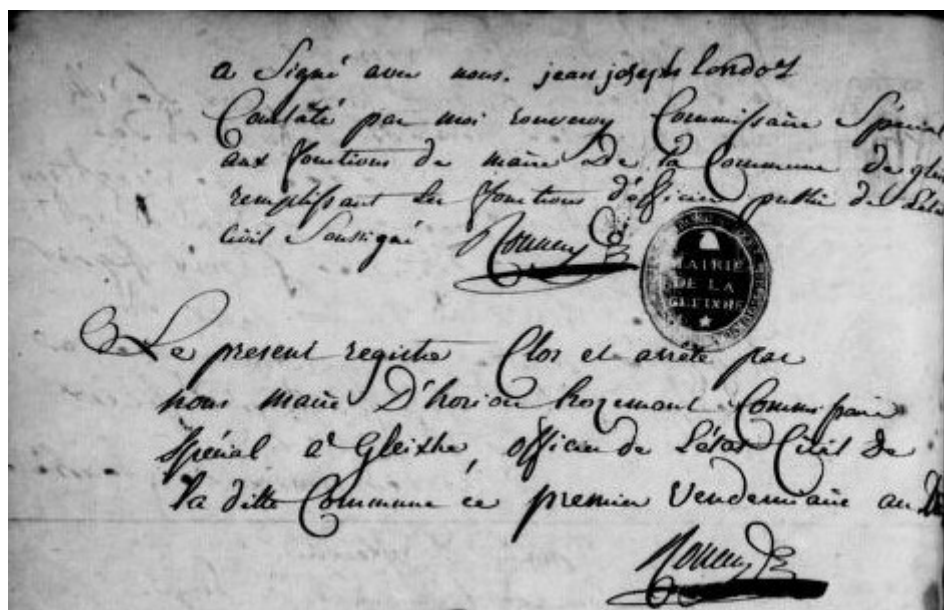 a Signé avec nous. jean joseph londot
Constaté par moi rouveroy Commissaire Spécial
aux fonctions de maire de la Commune de
remplissant les fonctions d'officier public de
civil Soussigné
MAIRIE
DE LA
GLEIXHE
Le present registre Clos et arrêté par
nous maire D'horion hozemont Commissaire
Spécial a Gleixhe, officier de L'état Civil de
la ditte Commune ce premier Vendemiaire an